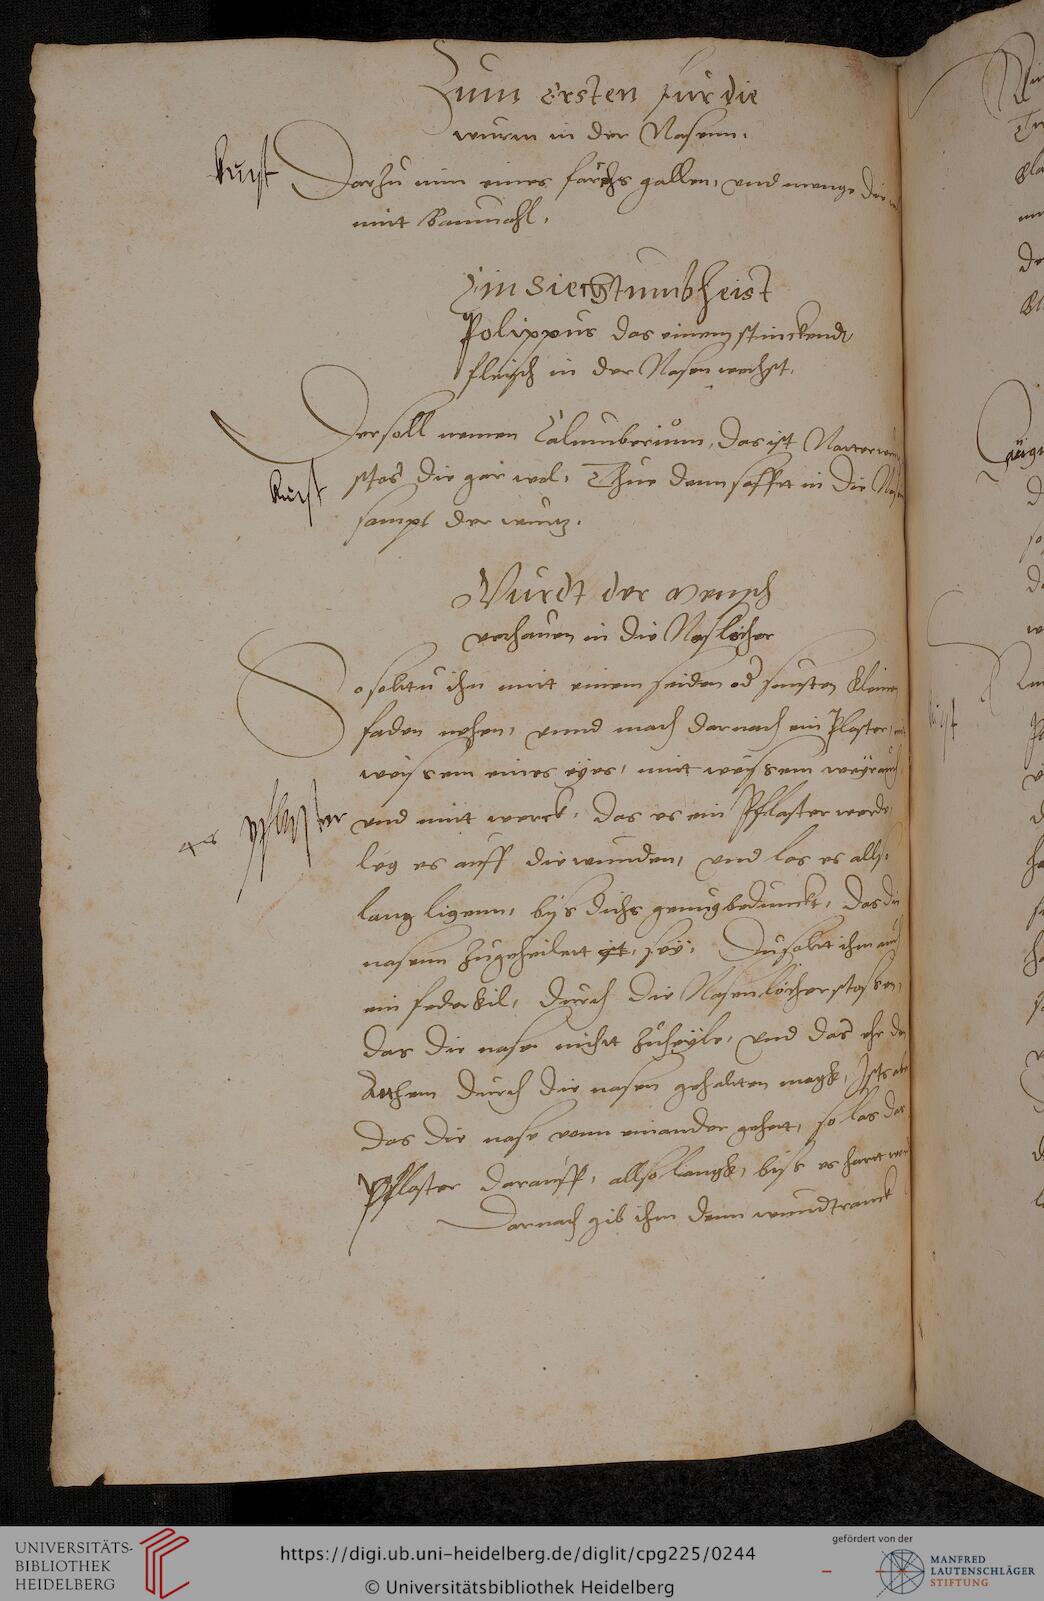 Zum Ersten fur die
wurm in der Nasenn.
kunst
Darzu nim eines farchs gallen, und menge die
mitt Baumohl.
Ein Siechtumb heist
Polippus das einem stinckendt
fleisch in der Nasen wechst.
Der soll nemen Columborium, das ist Natterwur
kunst
stos die gar wol, Thue denn safft in die Nas
sampt der wurtz.
Wurdt der Mensch
verhauen in die Naslöcher
So soltu ihn mitt einem seiden od sunsten kleinen
faden nehen, unnd mach darnach ein Plaster,
weissem eines eyes, mitt weissem weyrauch,
Pflaster
und mitt werck, das es ein Pflaster werde
leg es auff die wunden, und las es alls
lang ligenn, bys dichs genug bedunckt, das die
nasenn zugeheilett ist, sey, Du solt ihm auch
ein federkil, durch die Nasenlöcher stossen,
das die nase nicht zuheyle, und das ehr den
Atthem durch die nasen gehalten magk, Ists aber
das die nase vonn einander gehett, so las das
Pflaster darauff, allso langk, biss es hartt
Darnach gib ihm denn wundtranck
UNIVERSITÄTS-
BIBLIOTHEK
HEIDELBERG
https://digi.ub.uni-heidelberg.de/diglit/cpg225/0244
© Universitätsbibliothek Heidelberg
gefördert von der
MANFRED
LAUTENSCHLÄGER
STIFTUNG